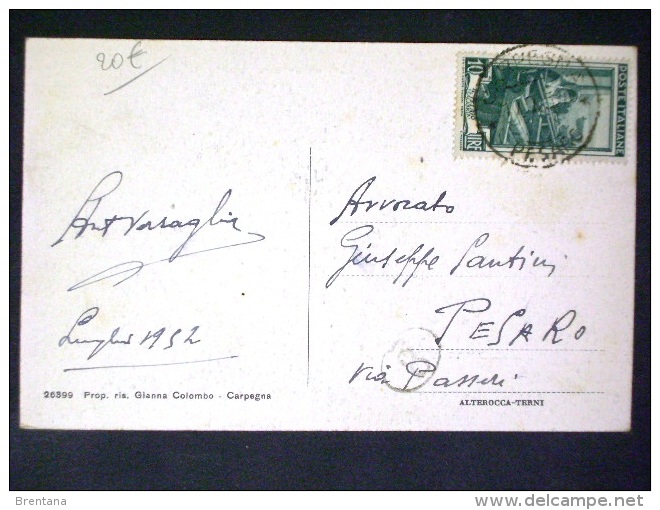 20€
10
LIRE
POSTE ITALIANE
Avvocato
Giuseppe Santini
PESARO
Via Passeri
Luglio 1952
26399 Prop. ris. Gianna Colombo - Carpegna
ALTEROCCA-TERNI
Brentana
delcampe.net